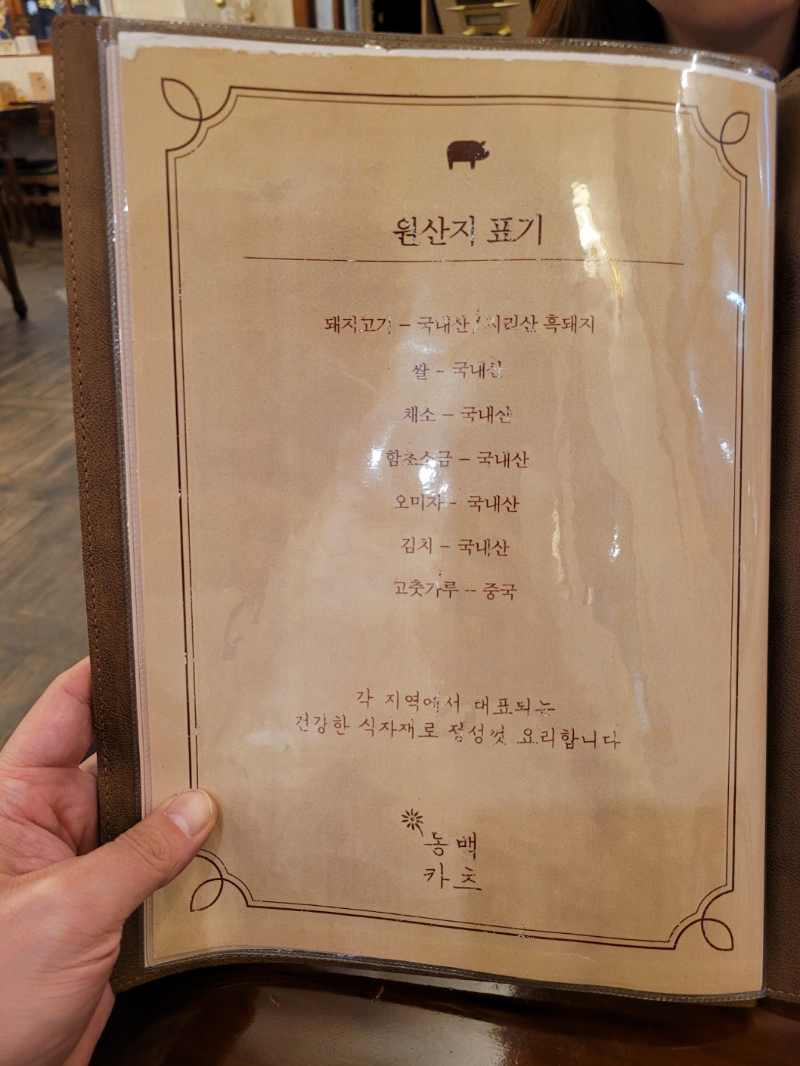 원산지 표기
돼지고기 – 국내산 / 지리산 흑돼지
쌀 – 국내산
채소 – 국내산
함초소금 – 국내산
오미자 - 국내산
김치 – 국내산
고춧가루 -- 중국
각 지역에서 대표되는
건강한 식자재로 정성껏 요리합니다
동백
카츠